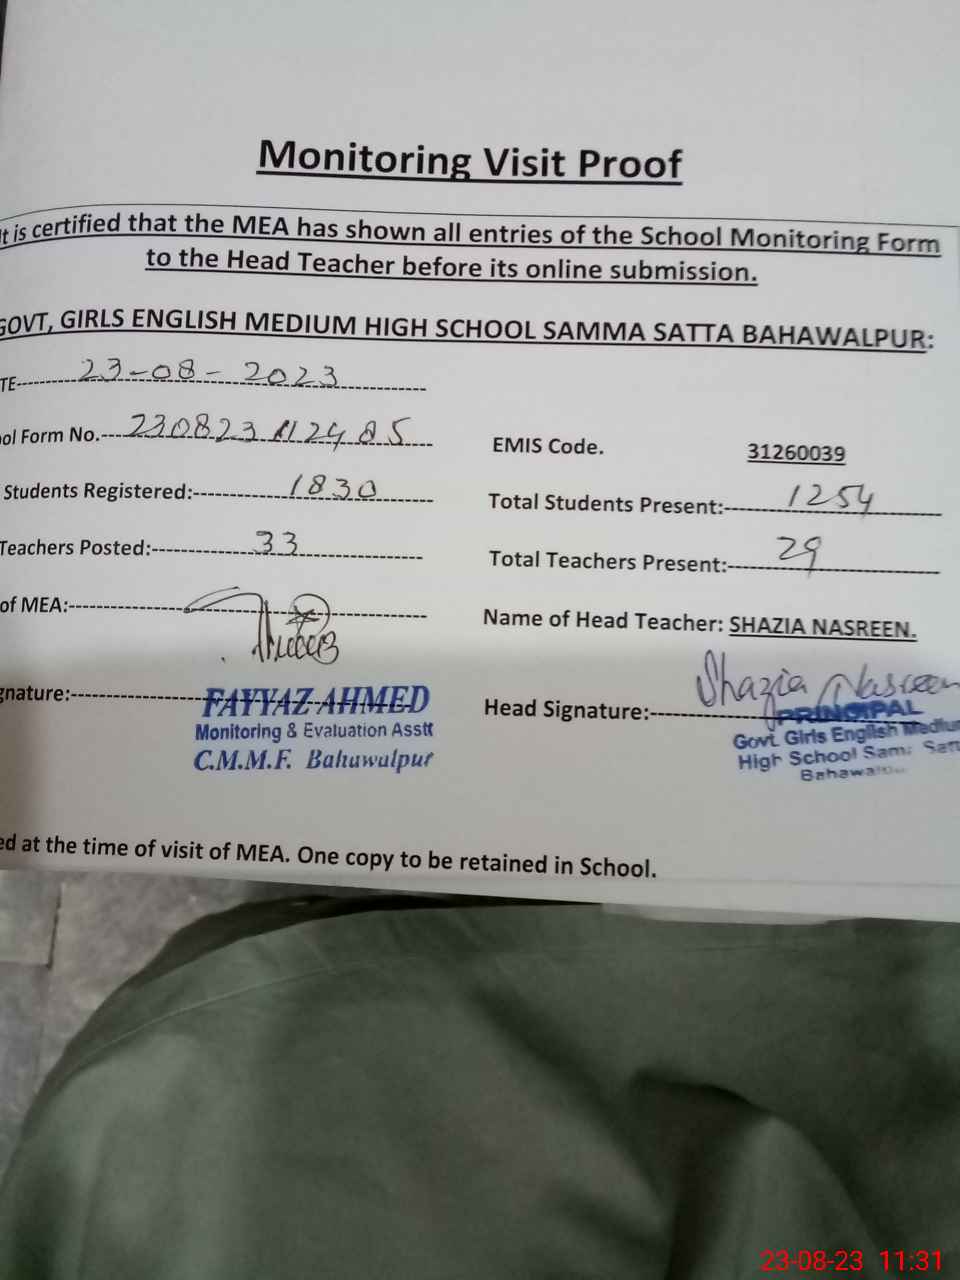 Monitoring Visit Proof
It is certified that the MEA has shown all entries of the School Monitoring Form
to the Head Teacher before its online submission.
GOVT, GIRLS ENGLISH MEDIUM HIGH SCHOOL SAMMA SATTA BAHAWALPUR:
TE- 23-08-2023
ool Form No.- EMIS Code. 31260039
Students Registered:- 1830 Total Students Present:- 1254
Teachers Posted:- 33 Total Teachers Present:- 29
of MEA:- Name of Head Teacher: SHAZIA NASREEN.
gnature:- Head Signature:- Shazia Nasreen
FAYYAZ AHMED
Monitoring & Evaluation Asstt
C.M.M.F. Bahawalpur
PRINCIPAL
Govt. Girls English Medium
High School Sama Satt
Bahawal
ed at the time of visit of MEA. One copy to be retained in School.
23-08-23 11:31